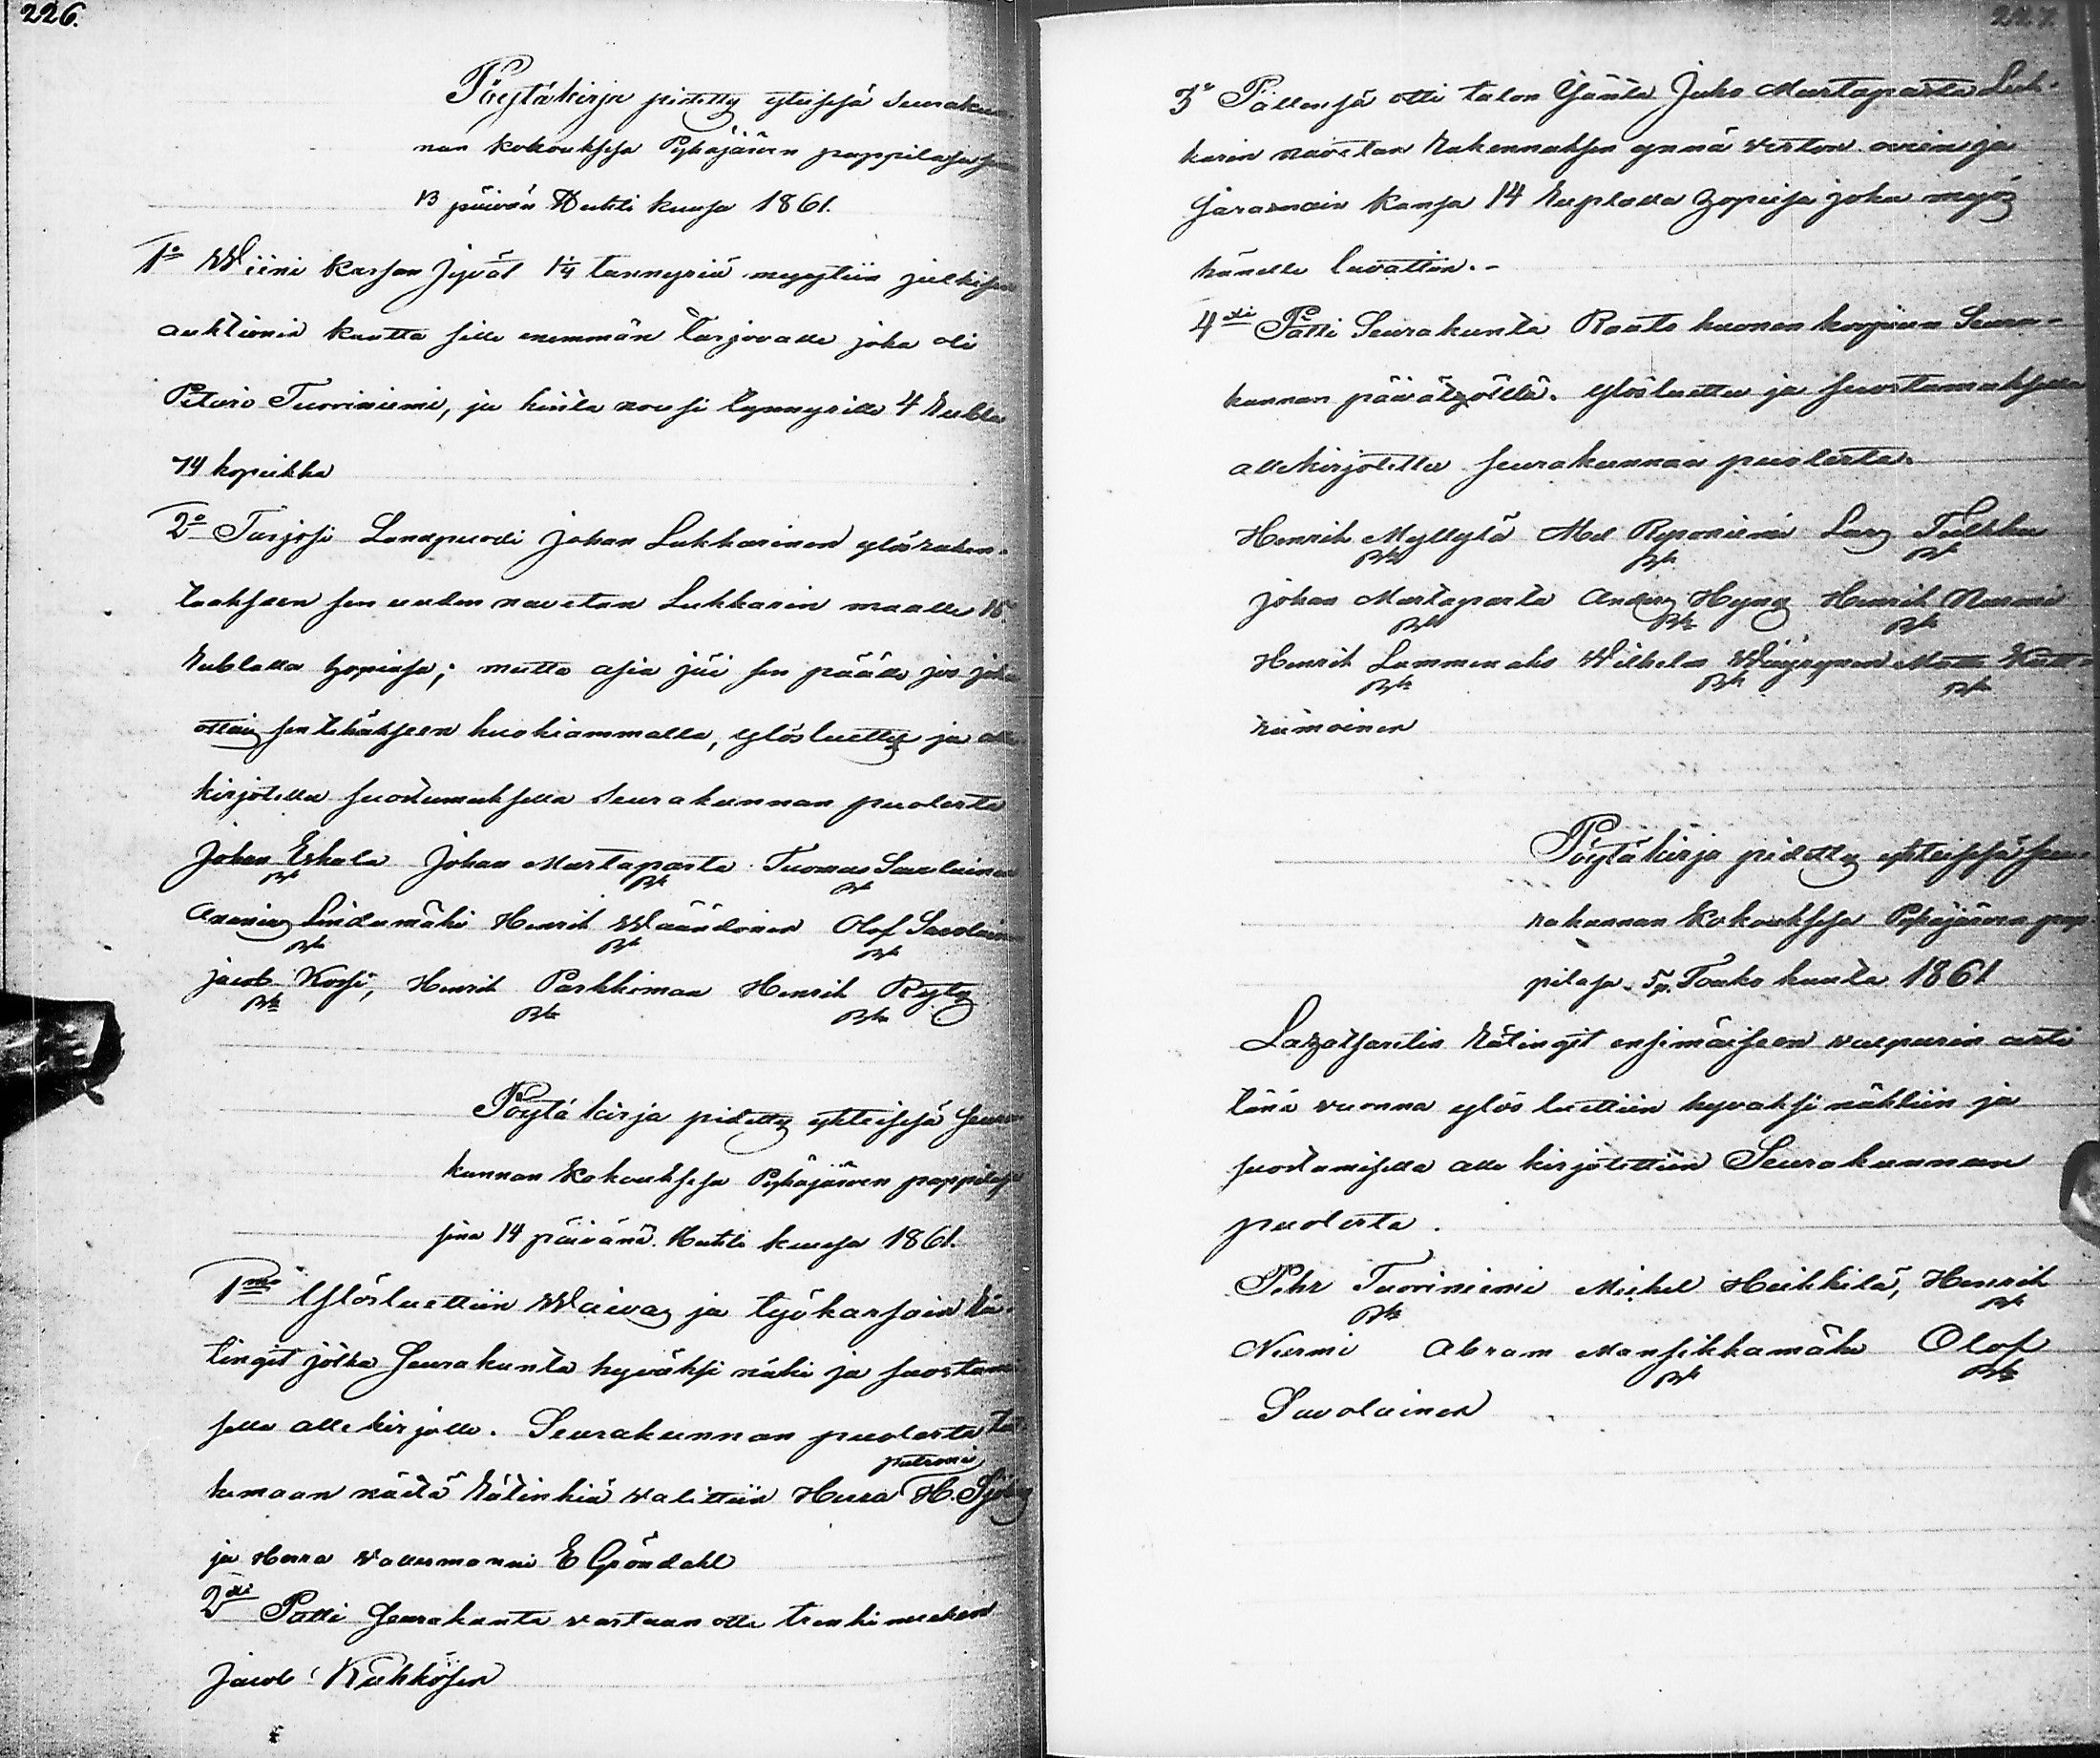 226.
Pöytäkirja pidetty yteisesä Seurakun
nan kokouksesa Pyhäjärven pappilasa
13 päivän Huhti kuusa 1861.
1o Wiini kassan jyvät 1¼ tannyriä myytiin julkisen
auktionin kautta sille enemmän tarjovalle joka oli
Petari Tuoviniemi, ja hinta nousi tynnyrille 4 Rubla
74 kopeikka
2o Tarjosi Landpuodi Johan Lukkarinen ylösraken-
taaksen sen uuden navetan Lukkarin maalle 15
Rublalla hopiasa; mutta asia jäi sen päälle jos joku
ottais sen tehäkseen huokiammalla, ylösluettu ja alle
kirjotettu suostumuksella Seurakunnan puolesta
Johan Eskola Johan Mustaparta Tuomas Savolainen
Bk Bk Bk
Ananias Lindamäki Henrik Wäänänen Olof Savolain
Bk Bk Bk
jacob Korsi, Henrik Parkkiman Henrik Rytq
Bk Bk Bk
Pöytä kirja pidetty yhteisesä Seura
kunnan kokouksesa Pyhäjärven pappilasa
sina 14 päivänä Huhti kuusa 1861.
1mo Ylösluettiin Waivas ja työkassain Rä-
tingit jotka Seurakunta hyväksi näki ja suostumi
sella alle kirjotti. Seurakunnan puolesta tut
patroni
kimaan näitä Rätinkiä valittiin Herra H. Sjöberg
ja Herra Vallesmanni E Gröndahl
2di Pätti Seurakunta vastaan otta
Jacob Kähkösen
227.
3o Pällensä otti talon Isäntä Juho Mustaparta Luk-
karin navetan Rakennuksen ynnä verton ovien ja
saranain kansa 14 Ruplalla hopiasa joka myös
hänelle luvattin.-
4di Pätti Seurakunta Ruuto huonen korjuun Seura-
kunnan päivätyöllä. Ylösluettu ja suostumuksella
allekirjotettu seurakunnan puolesta.
Henrik Myllylä Abel Ryponiemi Lars Tulkku
Bk Bk Bk
Johan Mustaparta Anders Hyng Henrik Nurmi
Bk Bk Bk
Henrik Lammenaho Wilhelm Wäyrynen Matts Kutt-
Bk Bk Bk
niimoinen
Pöytäkirja pidetty yhteisesä Seu-
rakunnan Kokouksesa Pyhäjärven pap-
pilasa 5 p. Touko kuuta 1861
Lazatsaretin Rätingit ensimäiseen vaspurin asti
tänä vuonna ylös luettiin hyvaksi nähtiin ja
suostumisella alle kirjotettiin Seurakunnan
puolesta.
Pehr Tuoviniemi Michel Heikkilä, Henrik
Bk Bk
Niemi Abram Mansikkamäki Olof
Bk Bk
Savolainen